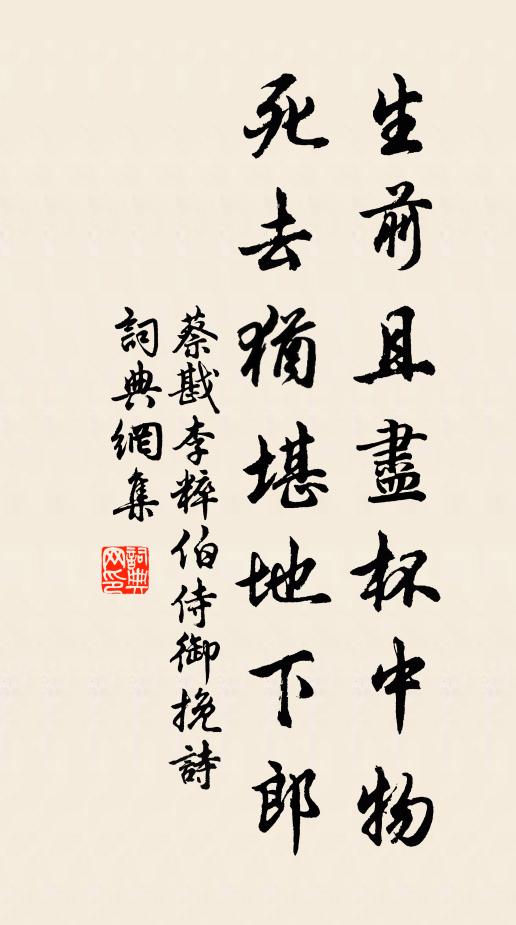 生前且盡杯中物
死去猶堪地下郎
蔡戡李粹伯侍御挽詩
詞典網集
詞典网印